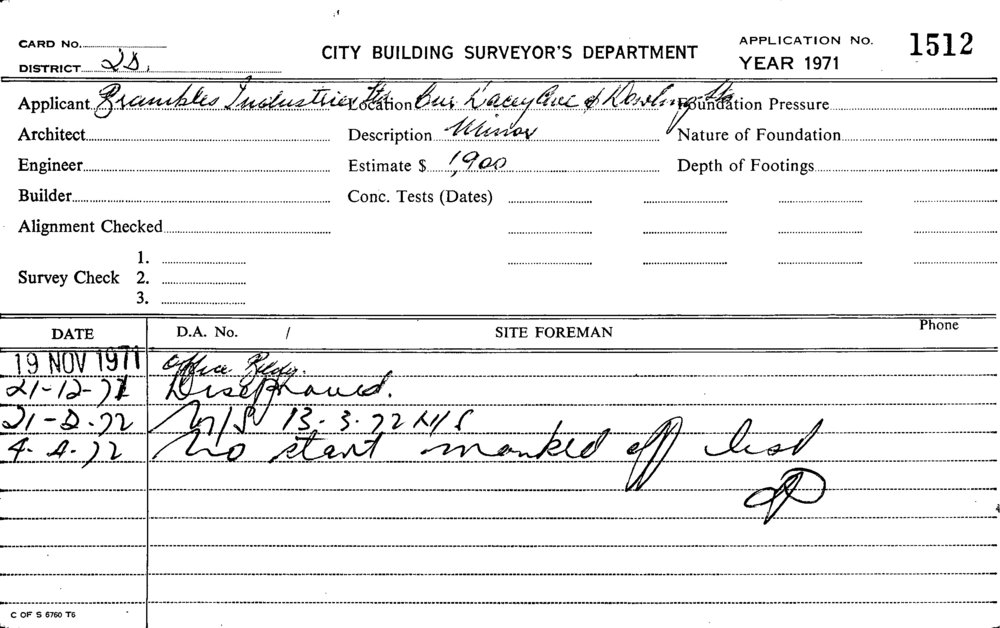 CARD No.
CITY BUILDING SURVEYOR'S DEPARTMENT
APPLICATION No. 1512
DISTRICT 2D.
YEAR 1971
Applicant Brambles Industries Ltd Location Cnr Dacey Ave & Dowling St Foundation Pressure
Architect Description Minor Nature of Foundation
Engineer Estimate $ 1,900 Depth of Footings
Builder Conc. Tests (Dates)
Alignment Checked
1.
Survey Check 2.
3.
DATE D.A. No. / SITE FOREMAN Phone
19 NOV 1971 Office Bldg.
21-12-71
21-2-72 N/S 13-3-72 N/S
4-4-72 No start marked off list
C OF S 6760 T6